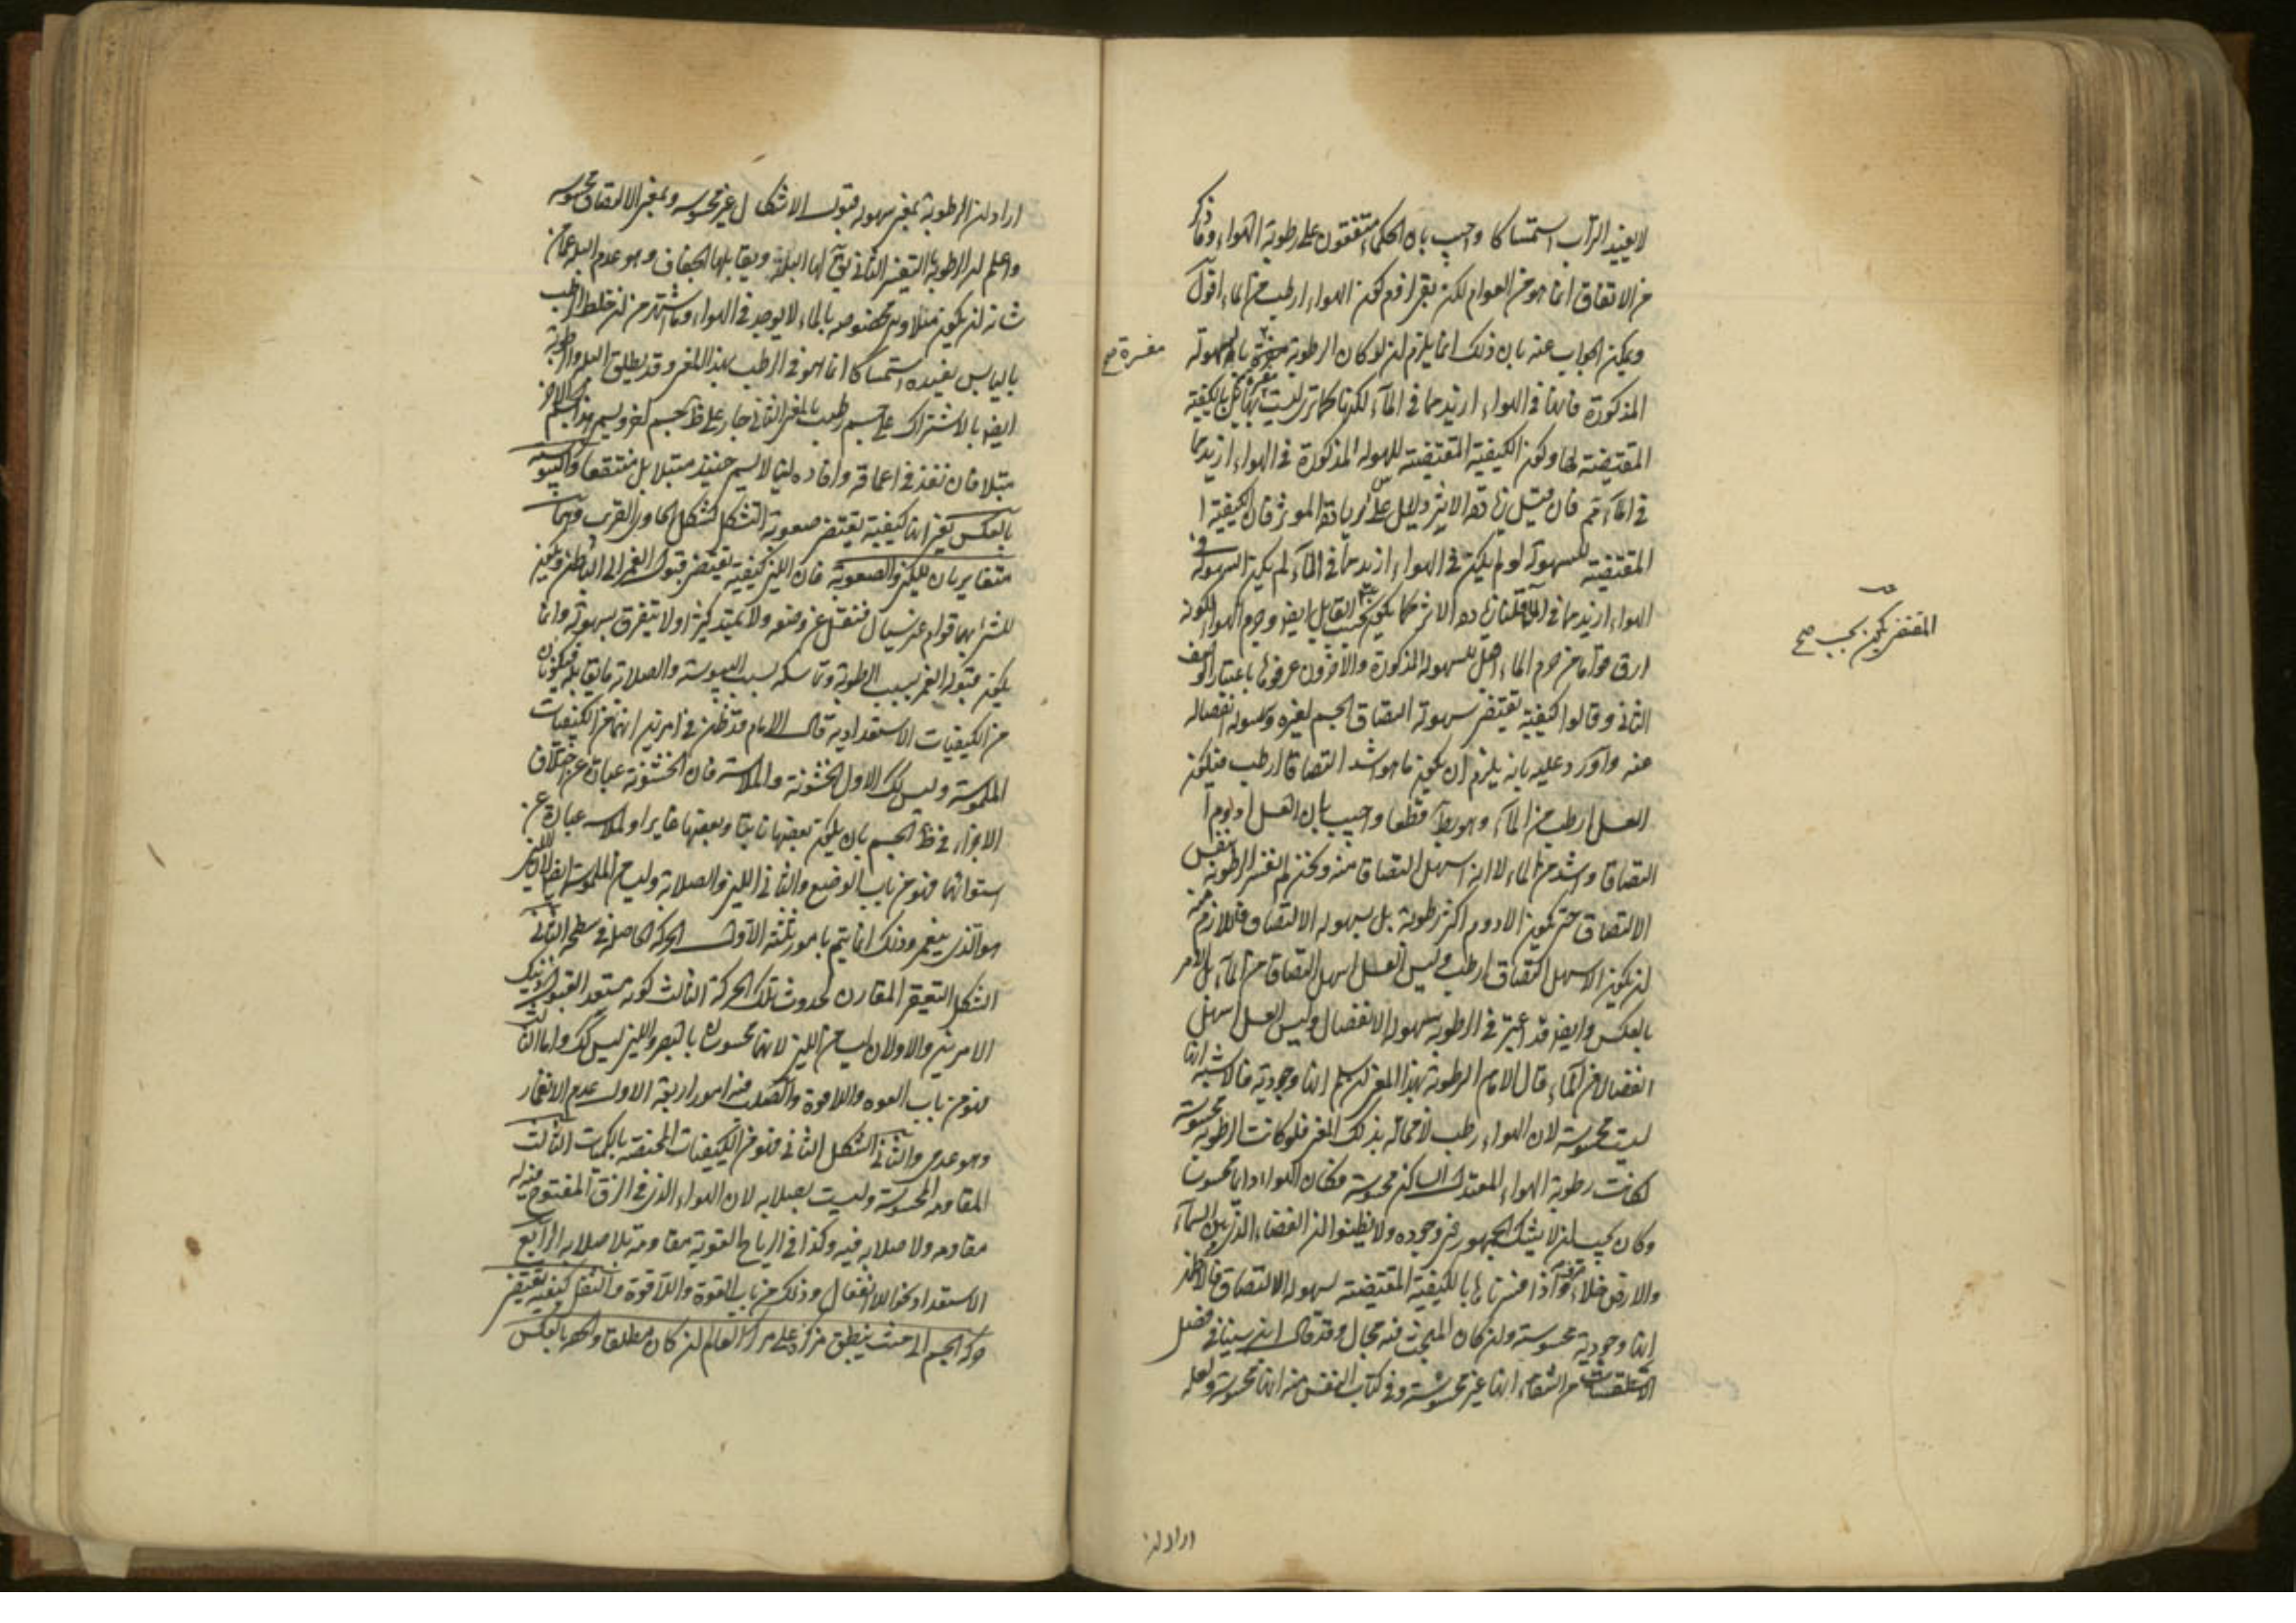 لا يفيد التراب استمساكا واجيب بان الحكماء متفقون على رطوبة الهواء وما ذكر
من الاتفاق انما هو من العوام لكن بقى الزام كون الهواء ارطب من الماء اقول
ويمكن الجواب عنه بان ذلك انما يلزم ان لو كان الرطوبة مفسرة بالسهولة
المذكورة فانها فى الهواء ازيد مما فى الماء لكنها كما ترى ليست بل بالكيفية
المقتضية لها وكون الكيفية المقتضية للسهولة المذكورة فى الهواء ازيد مما
فى الماء مم فان قيل زيادة الاثر دليل على زيادة المؤثر فان الكيفية
المقتضية للسهولة لو لم يكن فى الهواء ازيد مما فى الماء لم يكن السهولة فى
الهواء ازيد مما فى الماء قلنا زيادة الاثر كما يكون بحسب القابل ايضا وجرم الهواء لكونه
ارق قواما من جرم الماء اقبل للسهولة المذكورة والآخرون عرفوها باعتبار الوصف
الثانى وقالوا كيفية تقتضى سهولة التصاق الجسم لغيره وسهولة انفصاله
عنه واورد عليه بانه يلزم ان يكون ما هو اشد التصاقا ارطب فيكون
العسل ارطب من الماء وهو بط قطعا واجيب بان العسل ادوم
التصاقا واشد من الماء لا انه اسهل التصاقا منه ونحن لم نفسر الرطوبة بنفس
الالتصاق حتى يكون الادوم اكثر رطوبة بل بسهولة الالتصاق فاللازم منه
ان يكون الاسهل التصاقا ارطب وليس العسل اسهل التصاقا من الماء بل الامر
بالعكس وايضا قد اعتبر فى الرطوبة سهولة الانفصال وليس العسل اسهل
انفصالا من الماء قال الامام الرطوبة بهذا المعنى ان سلم انها وجودية فالاشبه انها
ليست محسوسة لان الهواء رطب لا محالة بذلك المعنى فلو كانت الرطوبة محسوسة
لكانت رطوبة الهواء المعتدل الساكن محسوسة فكان الهواء دائما محسوسا
وكان يجب ان لا يشك الجمهور فى وجوده ولا يظنوا ان الفضاء الذى بين السماء
والارض خلاء صرف واذا فسرناها بالكيفية المقتضية لسهولة الالتصاق فالاظهر
انها وجودية محسوسة وان كان للبحث فيه مجال وقد قال ابن سينا فى فصل
الاسطقسات من الشفاء انها غير محسوسة وفى كتاب النفس منه انها محسوسة ولعله
مفسرة صح
المقتضى يكون بحسب صح
اراد ان
اراد ان الرطوبة بمعنى سهولة قبول الاشكال غير محسوسة وبمعنى الالتصاق محسوسة
واعلم ان الرطوبة بالتفسير الثانى يق لها البلة ويقابلها الجفاف وهو عدم البلة عما من
شانه ان يكون مبتلا وهى مخصوصة بالماء لا يوجد فى الهواء وما اشتهر من ان خلط الرطب
باليابس يفيده استمساكا انما هو فى الرطب بهذا المعنى وقد يطلق البلة والرطوبة
ايضا بالاشتراك على جسم رطب بالمعنى الثانى جار على ظ جسم آخر ويسمى هذا الجسم الآخر
مبتلا فان نفذ فى اعماقه وافاده لينا لا يسمى حينئذ مبتلا بل منتقعا واليبوسة
بالعكس يعنى انها كيفية يقتضى صعوبة التشكل بشكل الحاوى القريب وهما
متغايران للين والصعوبة فان اللين كيفية يقتضى قبول الغمز الى الباطن ويكون
للشئ بها قوام غير سيال فينتقل عن وضعه ولا يمتد كثيرا ولا يتفرق بسهولة وانما
يكون قبوله الغمز بسبب الرطوبة وتماسكه بسبب اليبوسة والصلابة ما يقابله فيكونان
من الكيفيات الاستعدادية قال الامام قد يظن فى امرين انهما من الكيفيات
الملموسة وليس كك الاول الخشونة والملاسة فان الخشونة عبارة عن اختلاف
الاجزاء فى ظ الجسم بان يكون بعضها ناتيا وبعضها غائرا والملاسة عبارة عن
استوائها فهو من باب الوضع والثانى اللين والصلابة وليسا من الملموسة ايضا لان اللين
هو الذى ينغمز وذلك انما يتم بامور ثلثة الاول الحركة الحاصلة فى سطحه الثانى
الشكل التقعير المقارن لحدوث تلك الحركة الثالث كونه مستعد القبول ذينك
الامرين والاولان ليسا من اللين لانهما محسوسان بالبصر واللين ليس كك واما الثالث
فهو من باب القوة واللاقوة والصلب فيه امور اربعة الاول عدم الانغمار
وهو عدمى والثانى الشكل الثانى فهو من الكيفيات المختصة بالكميات الثالث
المقاومة المحسوسة وليست بصلابة لان الهواء الذى فى الزق المنفوخ فيه له
مقاومة ولا صلابة فيه وكذا فى الرياح القوية مقاومة بلا صلابة الرابع
الاستعداد نحو اللاانفعال وذلك من باب القوة واللاقوة والثقل كيفية تقتضى
حركة الجسم الى حيث ينطبق مركزه على مركز العالم ان كان مطلقا والخفة بالعكس